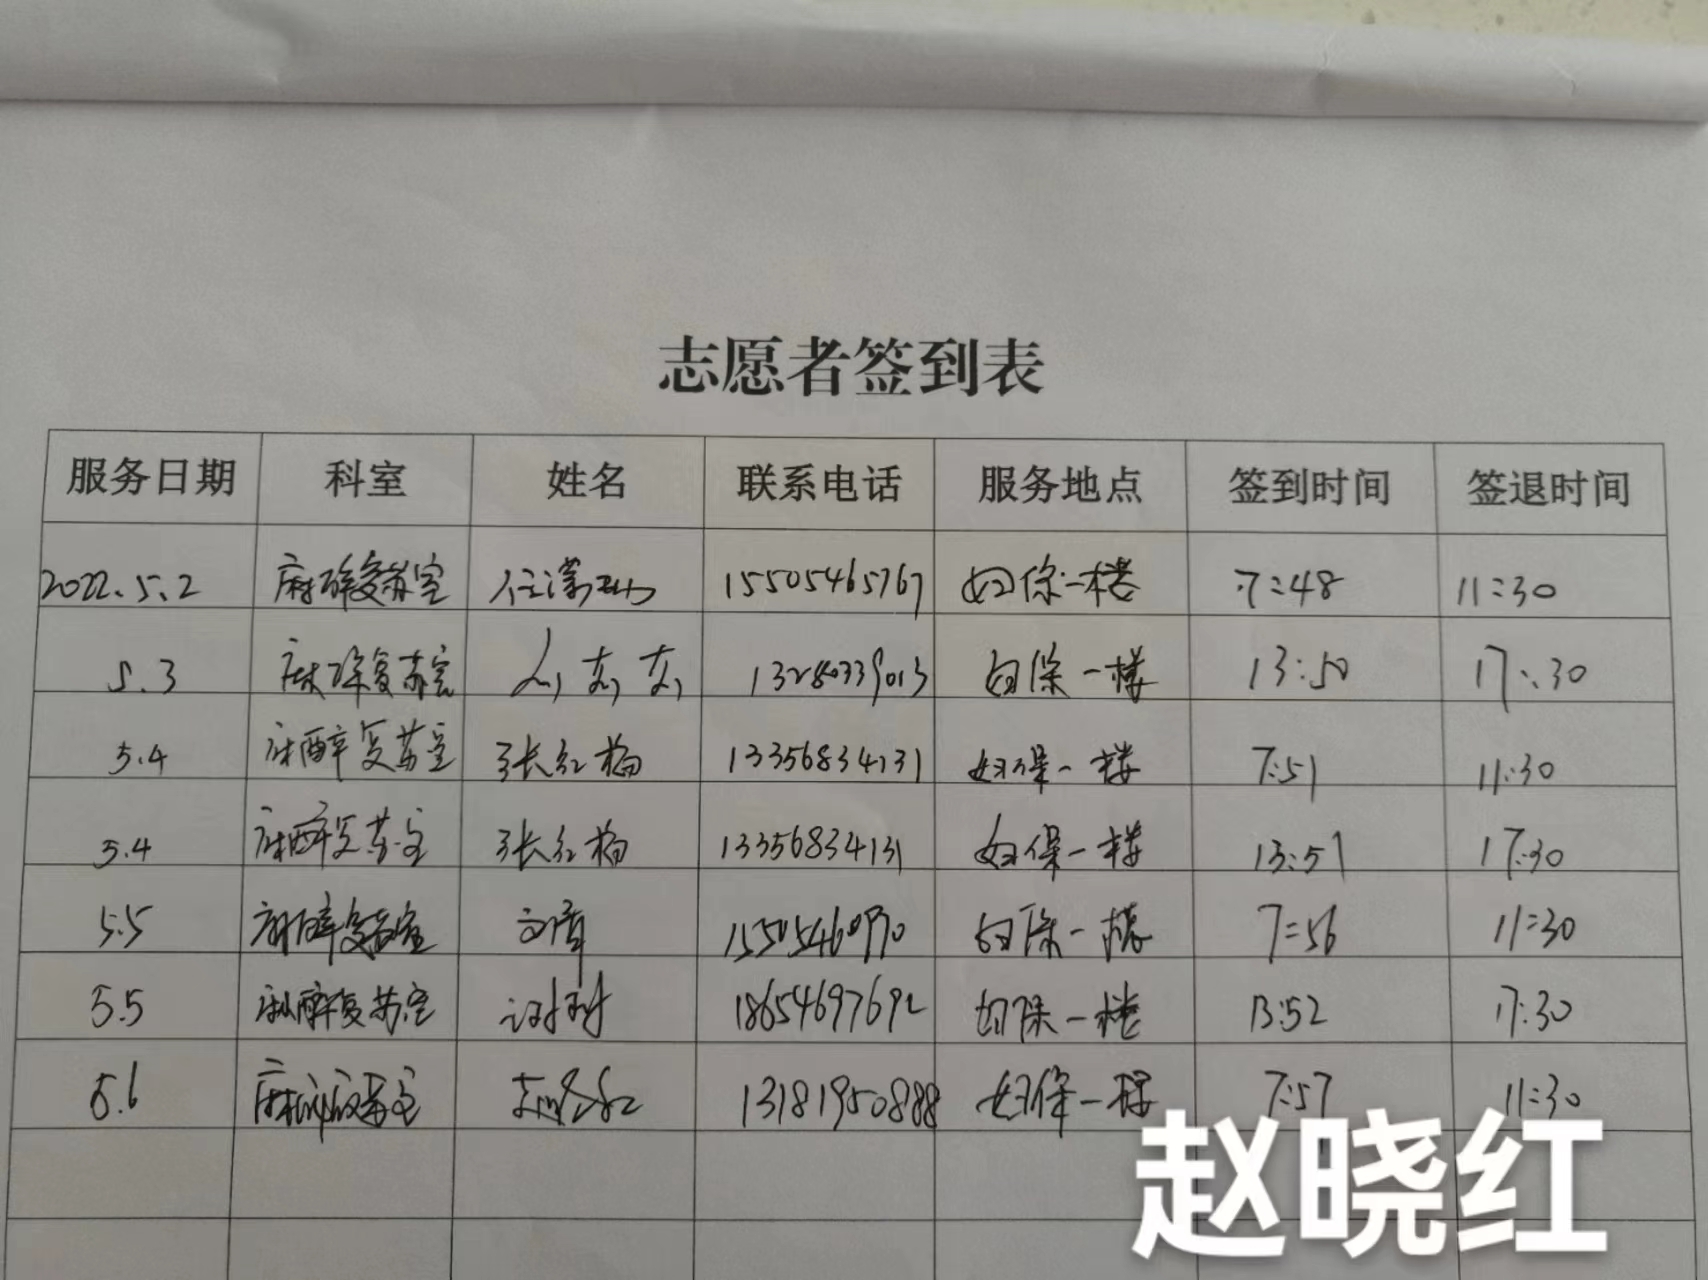 志愿者签到表
服务日期 科室 姓名 联系电话 服务地点 签到时间 签退时间
2022.5.2 麻醉复苏室 15505465767 妇保一楼 7:48 11:30
5.3 麻醉复苏室 13280339013 妇保一楼 13:50 17:30
5.4 麻醉复苏室 张红梅 13356834131 妇保一楼 7:51 11:30
5.4 麻醉复苏室 张红梅 13356834131 妇保一楼 13:51 17:30
5.5 麻醉复苏室 妇保一楼 7:56 11:30
5.5 麻醉复苏室 18654697692 妇保一楼 13:52 17:30
5.6 麻醉复苏室 赵晓红 13181950888 妇保一楼 7:57 11:30
赵晓红